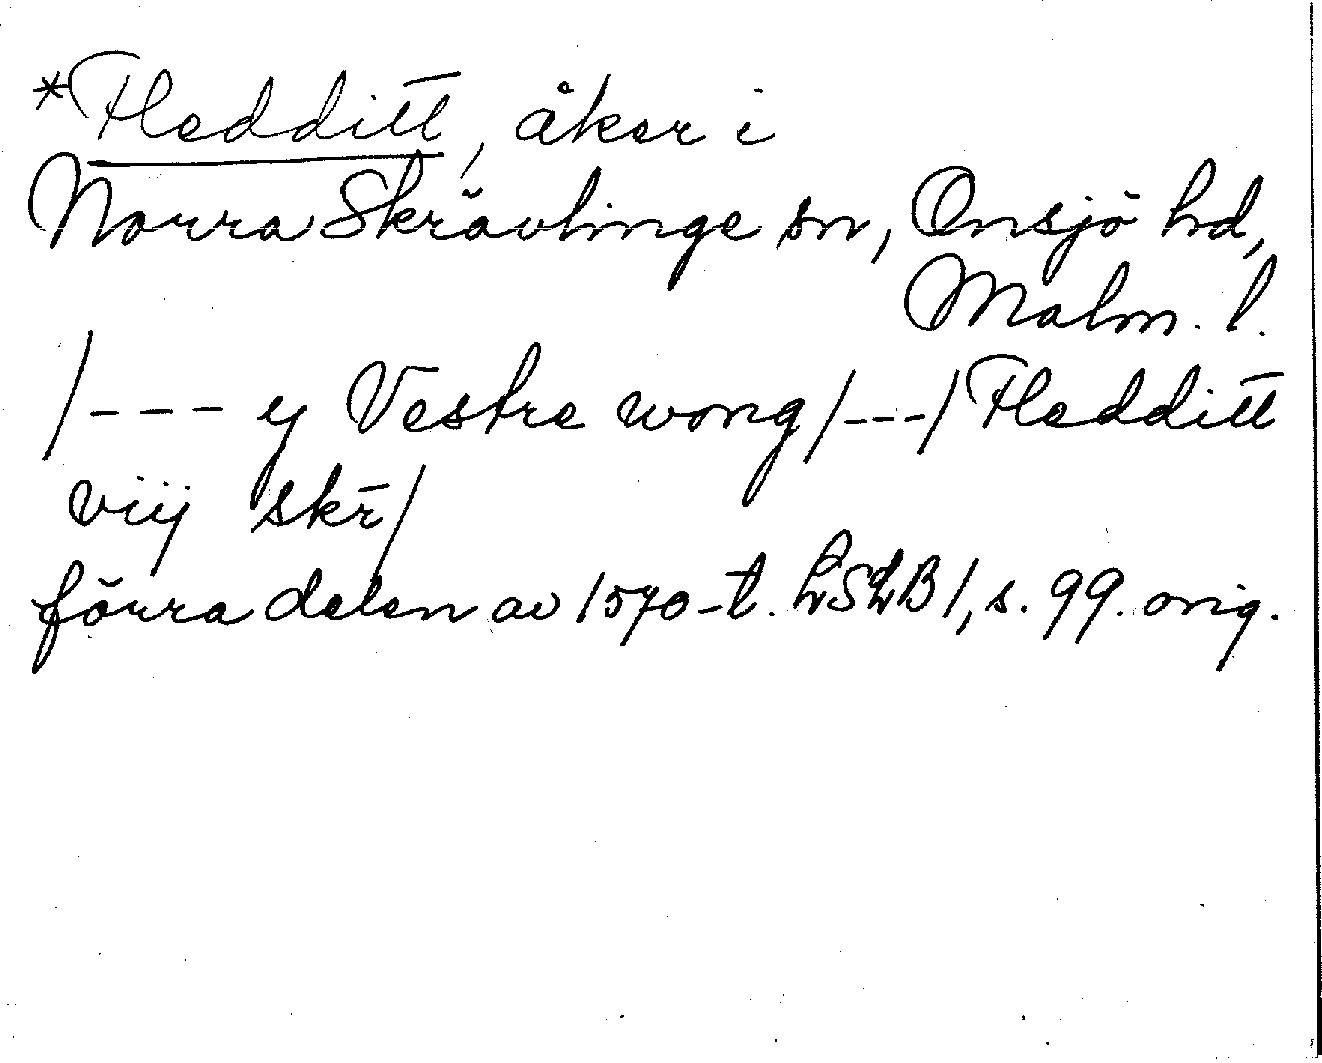 *Fledditt, åker i
Norra Skrävlinge sn, Onsjö hd,
Malm. l.
/--- y Vestre wong /---/ Fledditt
viij skr̄/
förra delen av 1570-t. LSLB 1, s. 99. orig.